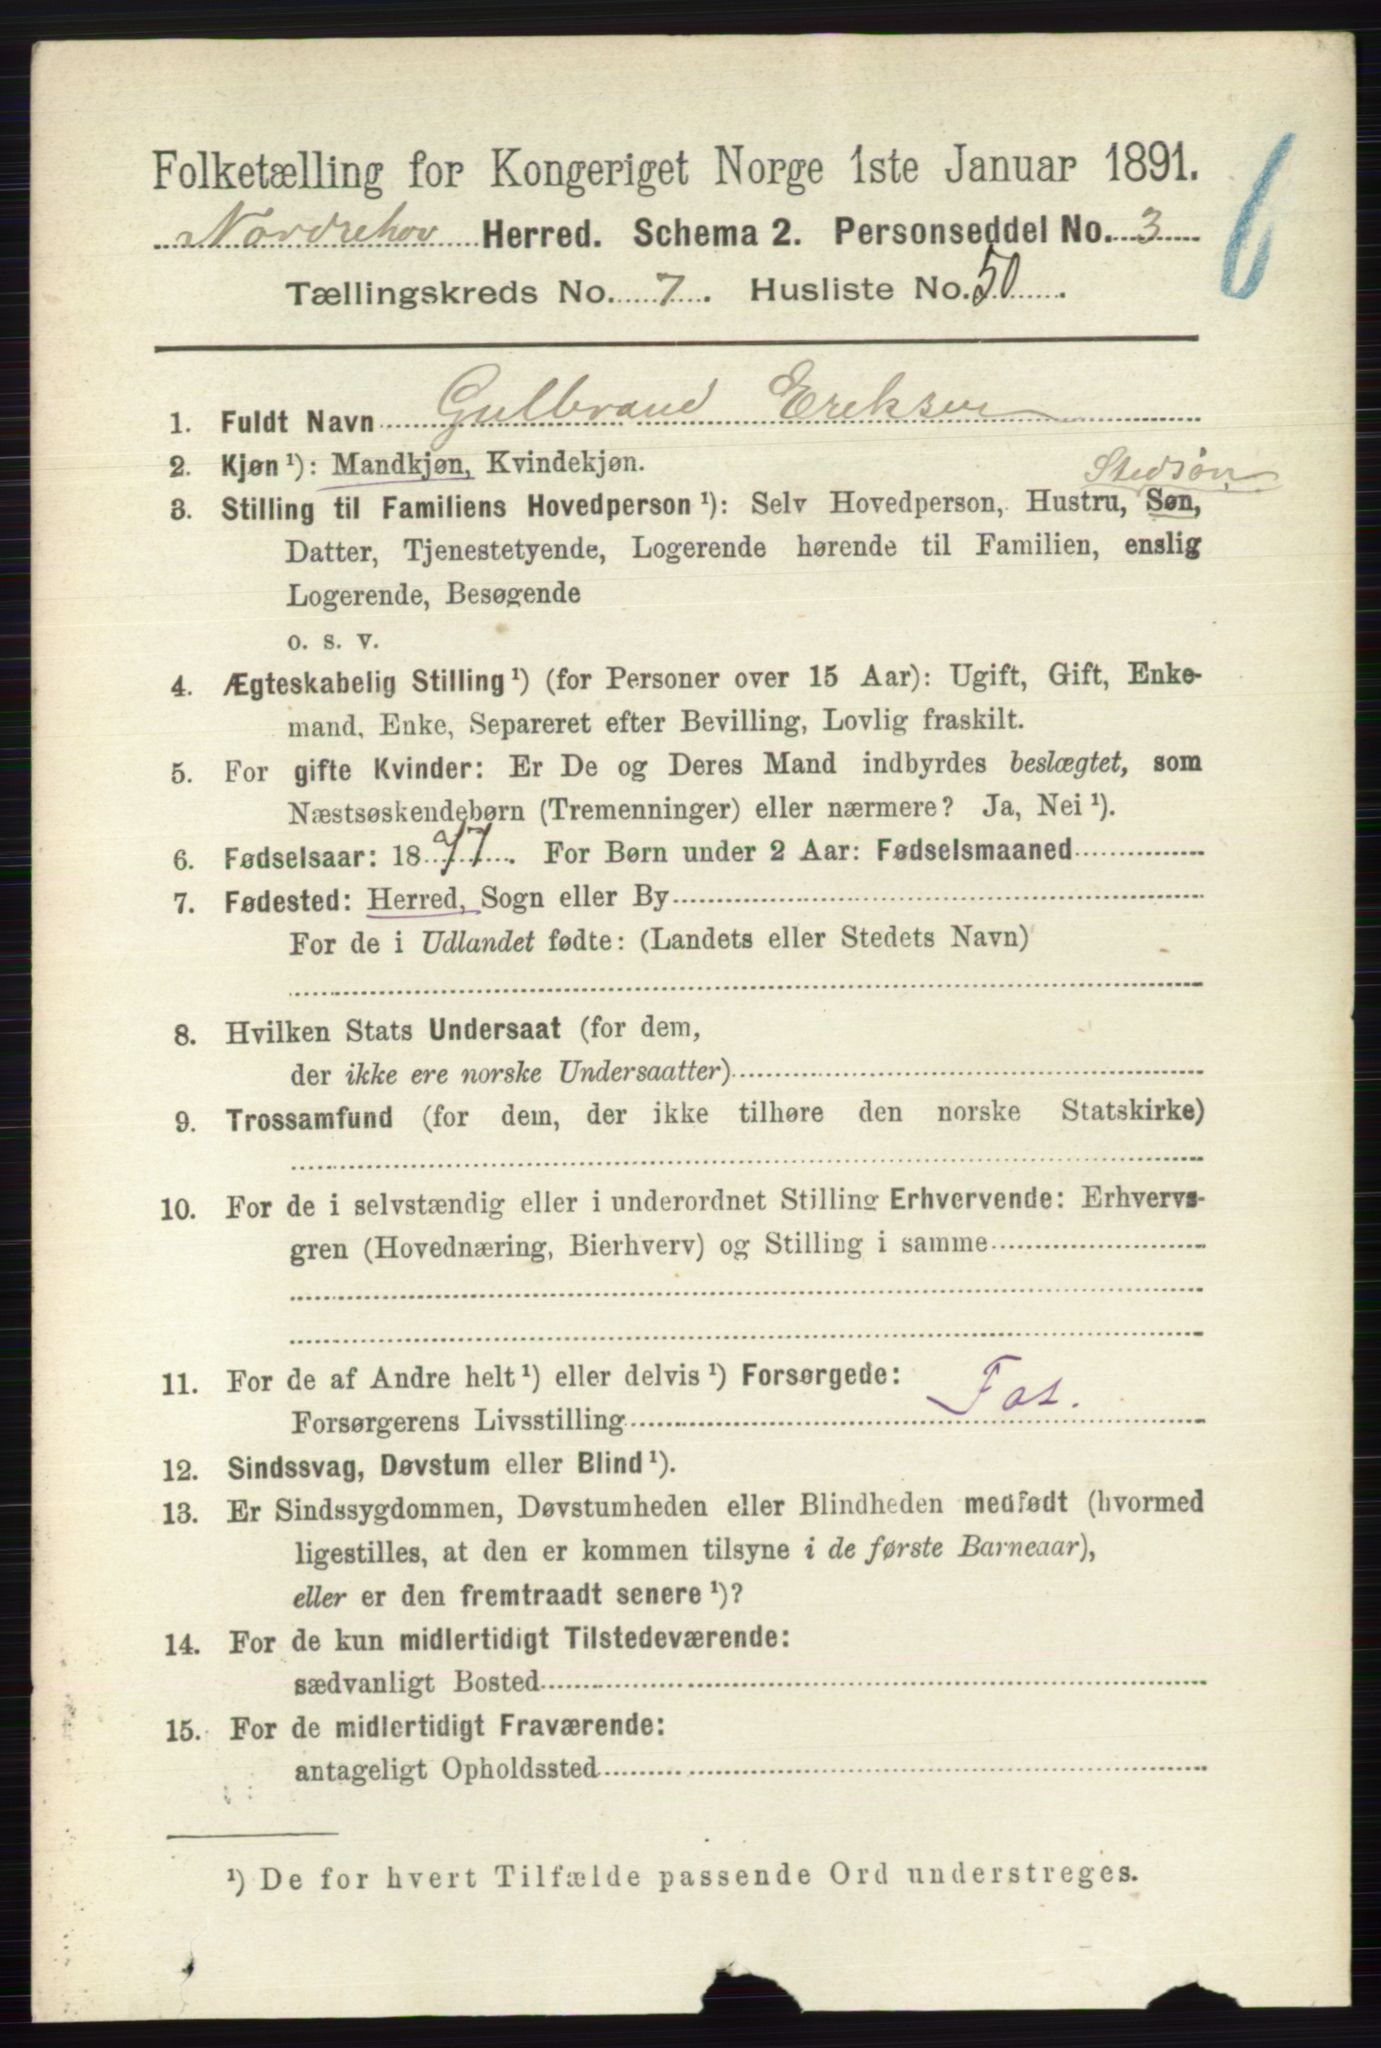 Folketælling for Kongeriget Norge 1ste Januar 1891.
6
Nordrehov Herred. Schema 2. Personseddel No. 3
Tællingskreds No. 7. Husliste No. 50.
1. Fuldt Navn Gulbrand Eriksen
2. Kjøn¹): Mandkjøn, Kvindekjøn.
Stedsøn
3. Stilling til Familiens Hovedperson¹): Selv Hovedperson, Hustru, Søn,
Datter, Tjenestetyende, Logerende hørende til Familien, enslig
Logerende, Besøgende
o. s. v.
4. Ægteskabelig Stilling¹) (for Personer over 15 Aar): Ugift, Gift, Enke-
mand, Enke, Separeret efter Bevilling, Lovlig fraskilt.
5. For gifte Kvinder: Er De og Deres Mand indbyrdes beslægtet, som
Næstsøskendebørn (Tremenninger) eller nærmere? Ja, Nei¹).
6. Fødselsaar: 1877. For Børn under 2 Aar: Fødselsmaaned
7. Fødested: Herred, Sogn eller By
For de i Udlandet fødte: (Landets eller Stedets Navn)
8. Hvilken Stats Undersaat (for dem,
der ikke ere norske Undersaatter)
9. Trossamfund (for dem, der ikke tilhøre den norske Statskirke)
10. For de i selvstændig eller i underordnet Stilling Erhvervende: Erhvervs-
gren (Hovednæring, Bierhverv) og Stilling i samme
11. For de af Andre helt¹) eller delvis¹) Forsørgede:
Forsørgerens Livsstilling Fas.
12. Sindssvag, Døvstum eller Blind¹).
13. Er Sindssygdommen, Døvstumheden eller Blindheden medfødt (hvormed
ligestilles, at den er kommen tilsyne i de første Barneaar),
eller er den fremtraadt senere¹)?
14. For de kun midlertidigt Tilstedeværende:
sædvanligt Bosted
15. For de midlertidigt Fraværende:
antageligt Opholdssted
¹) De for hvert Tilfælde passende Ord understreges.